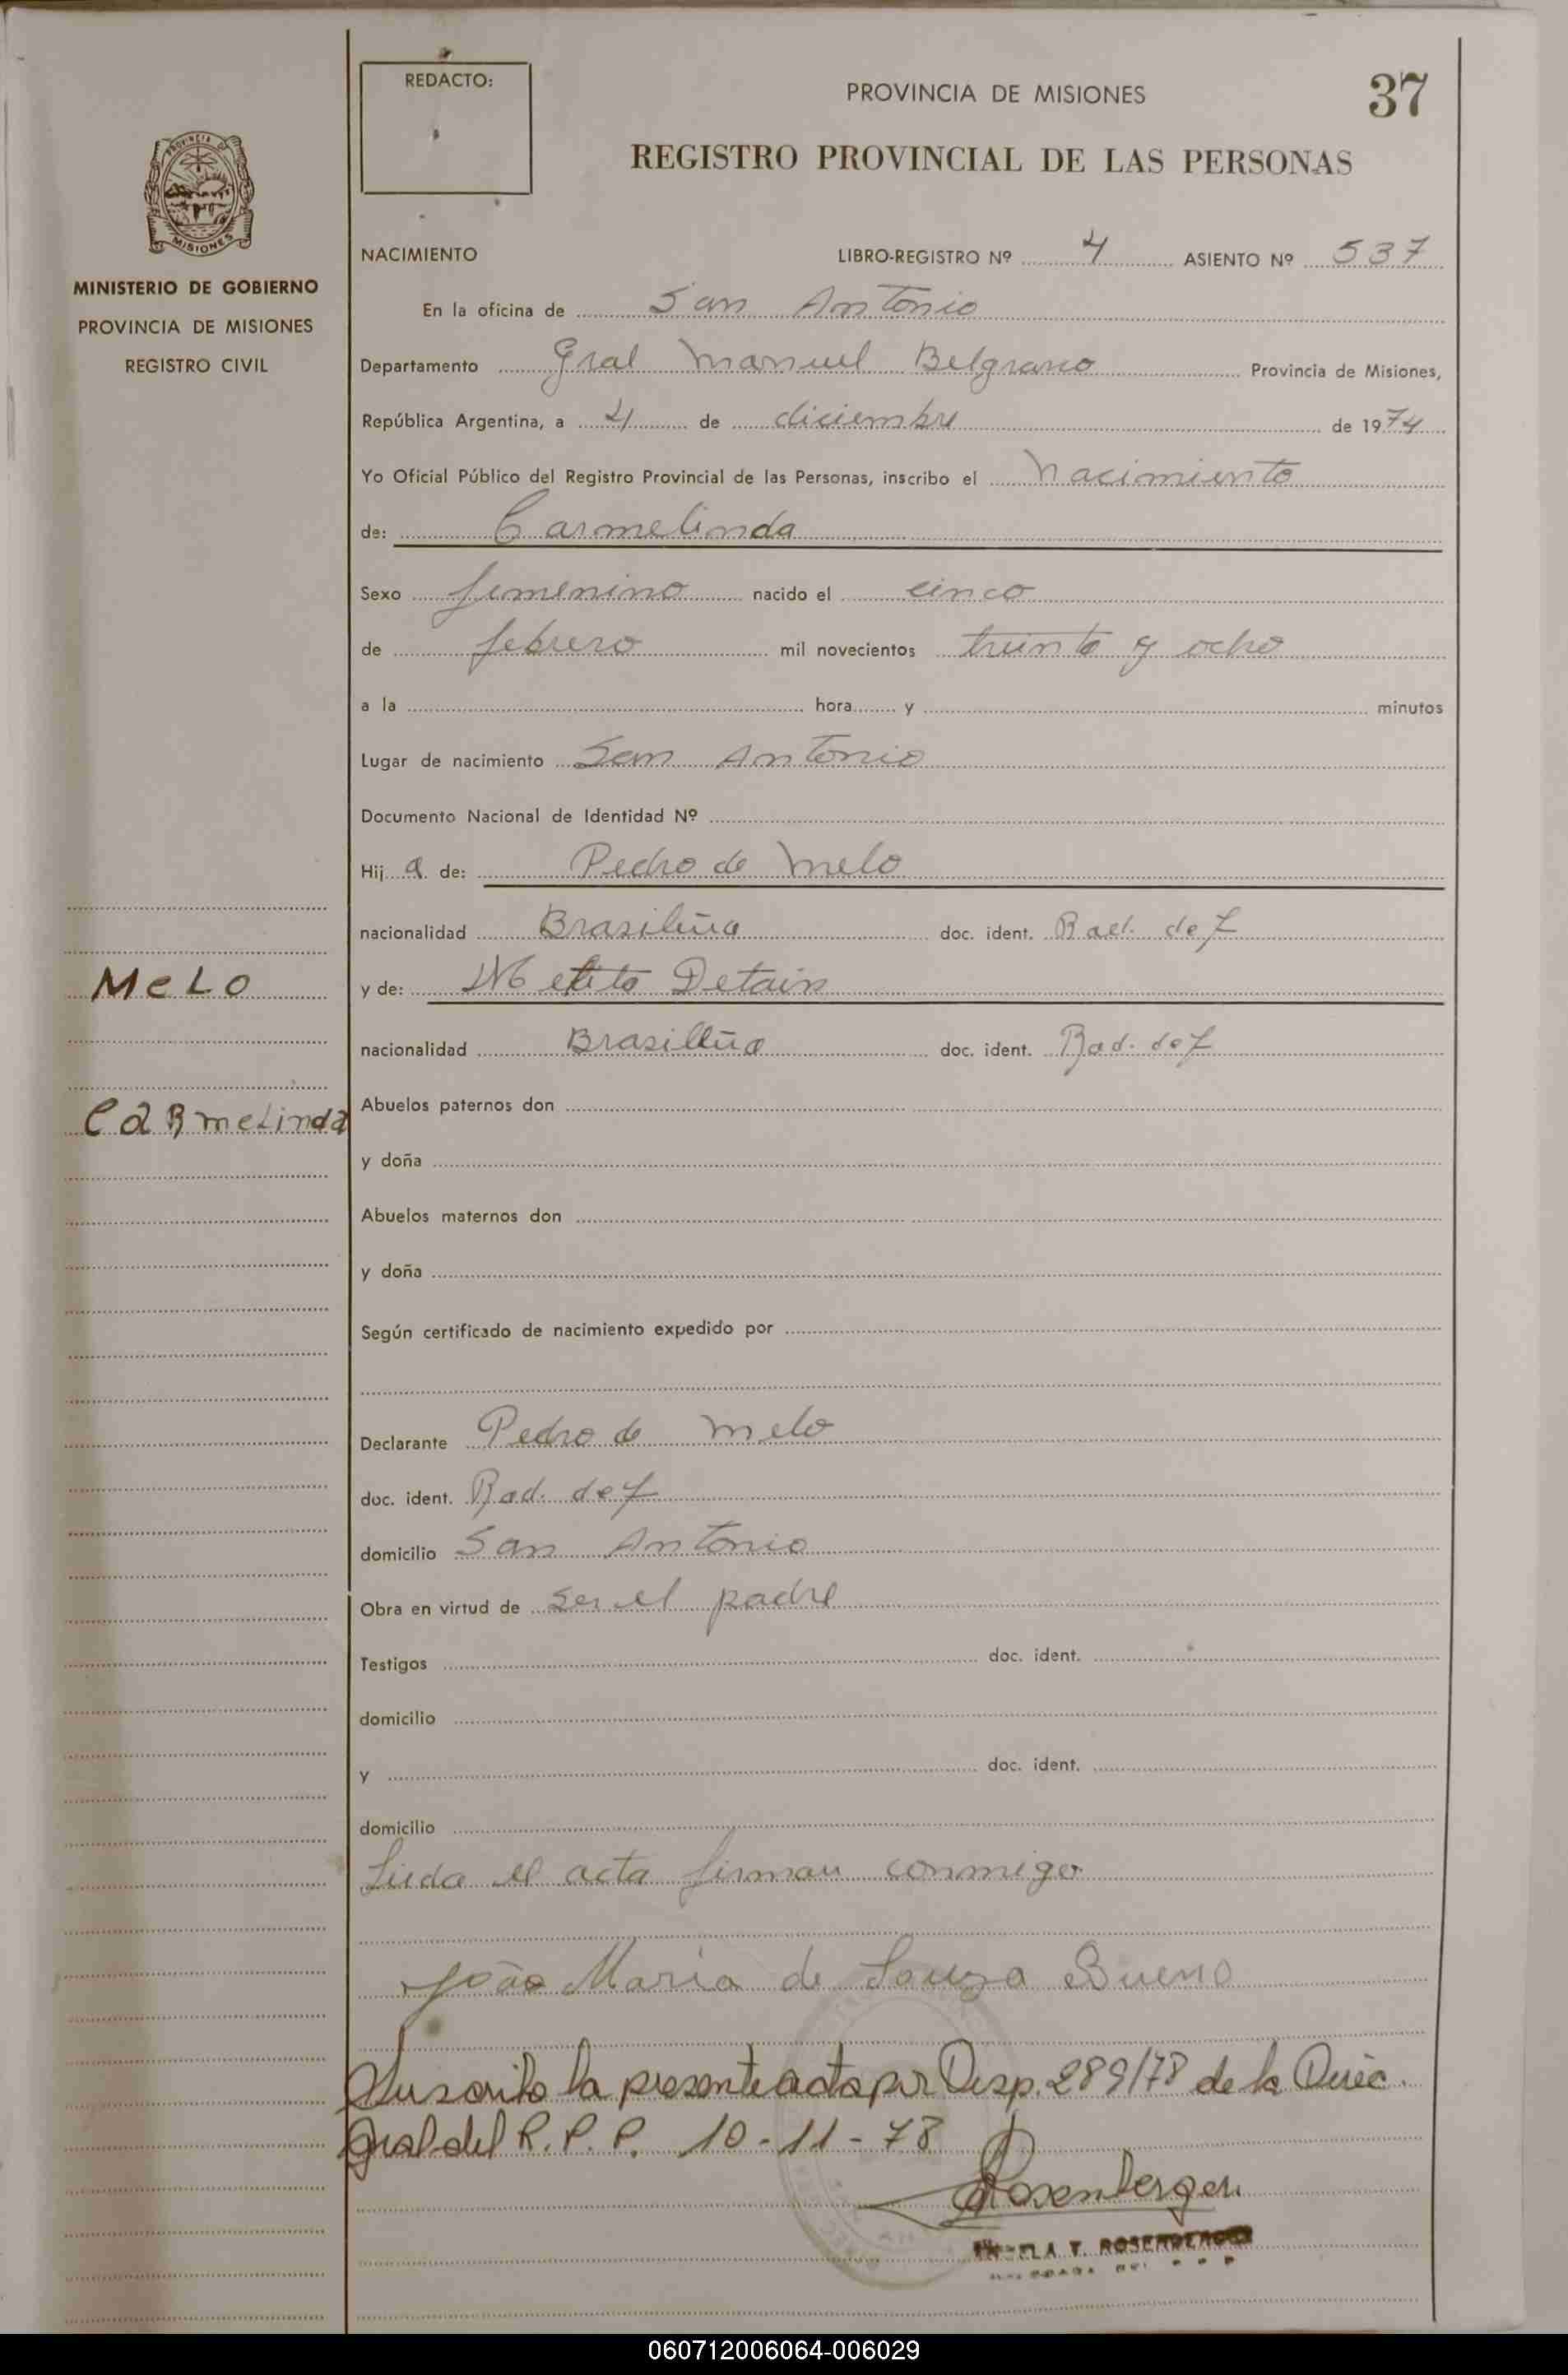 REDACTO:
PROVINCIA DE MISIONES
37
REGISTRO PROVINCIAL DE LAS PERSONAS
PROVINCIA DE
MISIONES
MINISTERIO DE GOBIERNO
PROVINCIA DE MISIONES
REGISTRO CIVIL
NACIMIENTO LIBRO-REGISTRO Nº 4 ASIENTO Nº 537
En la oficina de San Antonio
Departamento Gral Manuel Belgrano Provincia de Misiones,
República Argentina, a 4 de diciembre de 1974
Yo Oficial Público del Registro Provincial de las Personas, inscribo el Nacimiento
de: Carmelinda
Sexo femenino nacido el cinco
de febrero mil novecientos treinta y ocho
a la hora y minutos
Lugar de nacimiento San Antonio
Documento Nacional de Identidad Nº
Hij a de: Pedro de Melo
nacionalidad Brasileña doc. ident. Rad. def
MeLo
y de: Detain
nacionalidad Brasileña doc. ident. Rad. def
CaRmeLinda
Abuelos paternos don
y doña
Abuelos maternos don
y doña
Según certificado de nacimiento expedido por
Declarante Pedro de Melo
doc. ident. Rad. def
domicilio San Antonio
Obra en virtud de ser el padre
Testigos doc. ident.
domicilio
y doc. ident.
domicilio
Lieda el acta firman conmigo
João Maria de Souza Bueno
Suscrito la presente acta por Disp. 289/78 de la Direc.
Gral del R.P.P. 10-11-78
Rosenberger
T. ROSENBERGER
060712006064-006029